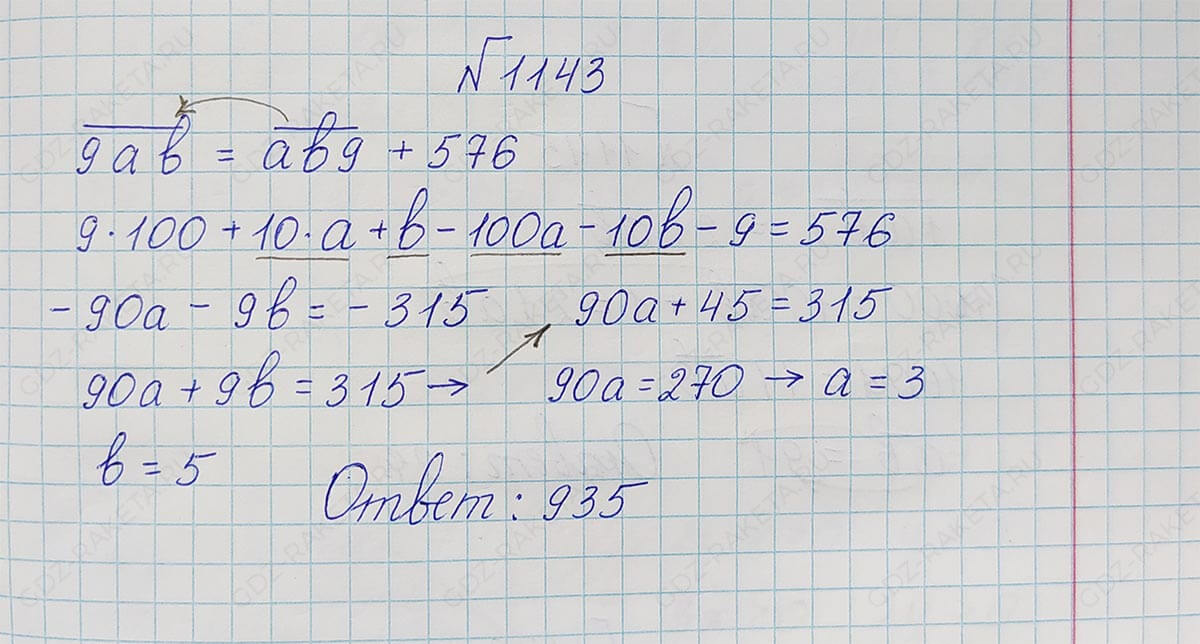 № 1143
9ab = abg + 576
9·100 + 10·a + b - 100a - 10b - 9 = 576
-90a - 9b = -315 90a + 45 = 315
90a + 9b = 315 → 90a = 270 → a = 3
b = 5
Ответ: 935
GDZ-RAKETA.RU